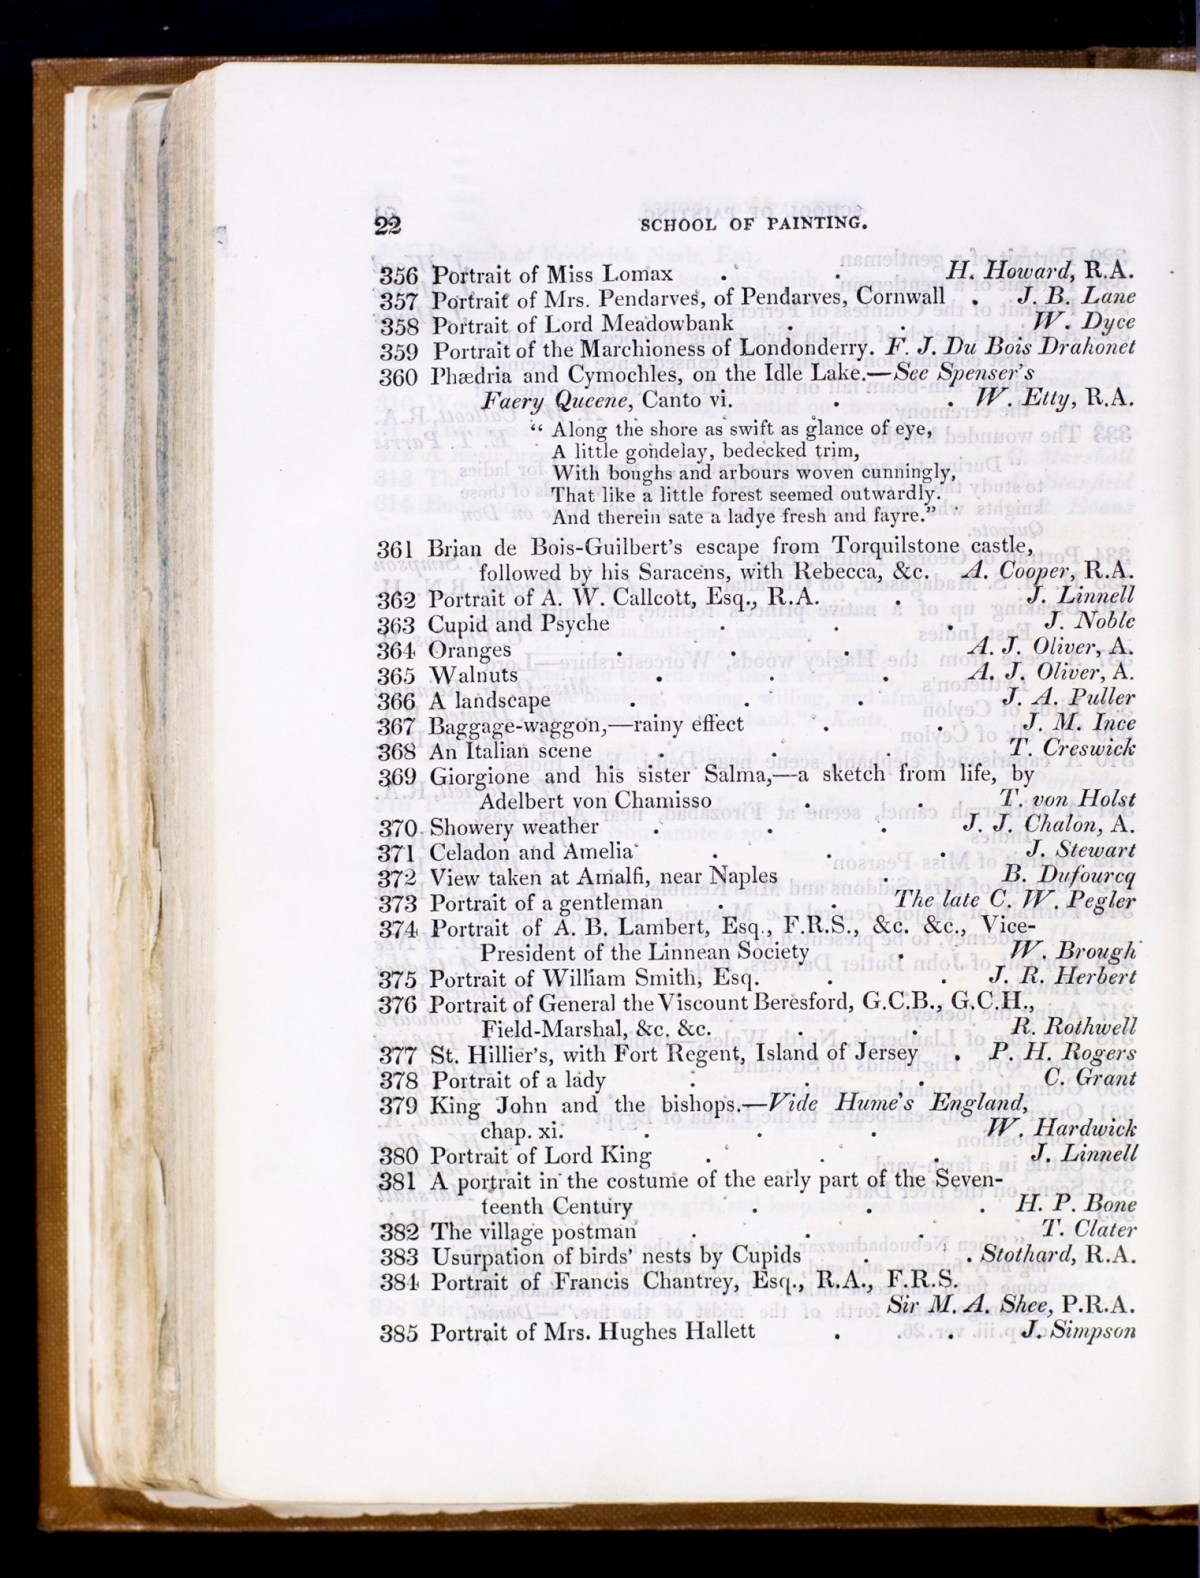 22 SCHOOL OF PAINTING.
356 Portrait of Miss Lomax . . H. Howard, R.A.
357 Portrait of Mrs. Pendarves, of Pendarves, Cornwall . J. B. Lane
358 Portrait of Lord Meadowbank . . W. Dyce
359 Portrait of the Marchioness of Londonderry. F. J. Du Bois Drahonet
360 Phædria and Cymochles, on the Idle Lake.—See Spenser's
Faery Queene, Canto vi. . . W. Etty, R.A.
“ Along the shore as swift as glance of eye,
A little gondelay, bedecked trim,
With boughs and arbours woven cunningly,
That like a little forest seemed outwardly.
And therein sate a ladye fresh and fayre.”
361 Brian de Bois-Guilbert's escape from Torquilstone castle,
followed by his Saracens, with Rebecca, &c. A. Cooper, R.A.
362 Portrait of A. W. Callcott, Esq., R.A. . J. Linnell
363 Cupid and Psyche . . . J. Noble
364 Oranges . . . A. J. Oliver, A.
365 Walnuts . . . A. J. Oliver, A.
366 A landscape . . . J. A. Puller
367 Baggage-waggon,—rainy effect . . J. M. Ince
368 An Italian scene . . . T. Creswick
369 Giorgione and his sister Salma,—a sketch from life, by
Adelbert von Chamisso . . T. von Holst
370 Showery weather . . . J. J. Chalon, A.
371 Celadon and Amelia . . . J. Stewart
372 View taken at Amalfi, near Naples . B. Dufourcq
373 Portrait of a gentleman . . The late C. W. Pegler
374 Portrait of A. B. Lambert, Esq., F.R.S., &c. &c., Vice-
President of the Linnean Society . W. Brough
375 Portrait of William Smith, Esq. . . J. R. Herbert
376 Portrait of General the Viscount Beresford, G.C.B., G.C.H.,
Field-Marshal, &c. &c. . . R. Rothwell
377 St. Hillier's, with Fort Regent, Island of Jersey . P. H. Rogers
378 Portrait of a lady . . . C. Grant
379 King John and the bishops.—Vide Hume's England,
chap. xi. . . . W. Hardwick
380 Portrait of Lord King . . . J. Linnell
381 A portrait in the costume of the early part of the Seven-
teenth Century . . . H. P. Bone
382 The village postman . . . T. Clater
383 Usurpation of birds' nests by Cupids . . Stothard, R.A.
384 Portrait of Francis Chantrey, Esq., R.A., F.R.S.
Sir M. A. Shee, P.R.A.
385 Portrait of Mrs. Hughes Hallett . . J. Simpson